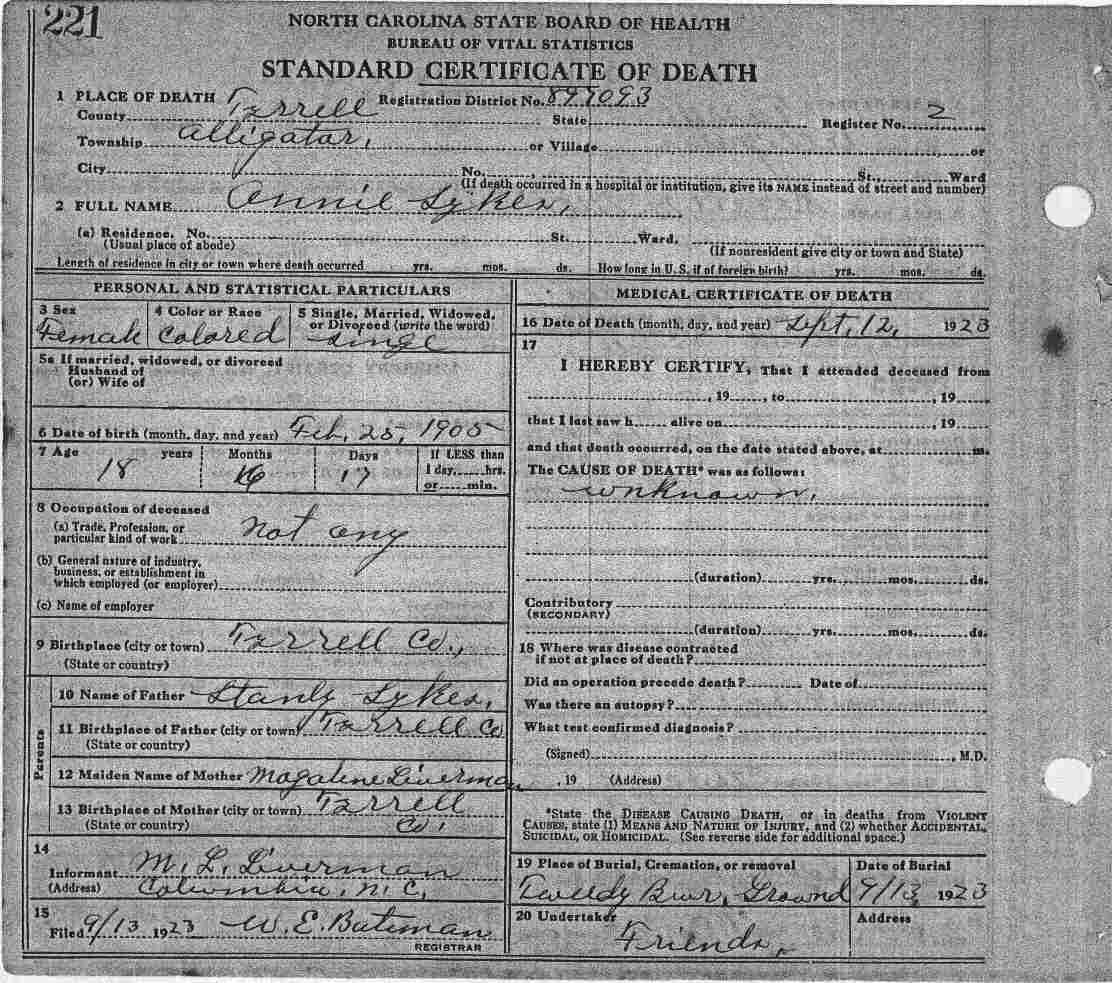 221
NORTH CAROLINA STATE BOARD OF HEALTH
BUREAU OF VITAL STATISTICS
STANDARD CERTIFICATE OF DEATH
1 PLACE OF DEATH Registration District No. 897093
County Tyrrell State Register No. 2
Township Alligator, or Village or
City No. St., Ward
(If death occurred in a hospital or institution, give its NAME instead of street and number)
2 FULL NAME Annie Sykes,
(a) Residence. No. St. Ward.
(Usual place of abode) (If nonresident give city or town and State)
Length of residence in city or town where death occurred yrs. mos. ds. How long in U. S. if of foreign birth? yrs. mos. ds.
PERSONAL AND STATISTICAL PARTICULARS
3 Sex 4 Color or Race 5 Single, Married, Widowed, or Divorced (write the word)
Female Colored Singe
5a If married, widowed, or divorced
Husband of
(or) Wife of
6 Date of birth (month, day, and year) Feb, 25, 1905
7 Age years Months Days If LESS than
18 6 17 1 day, hrs.
or min.
8 Occupation of deceased
(a) Trade, Profession, or
particular kind of work not any
(b) General nature of industry,
business, or establishment in
which employed (or employer)
(c) Name of employer
9 Birthplace (city or town) Tyrrell Co.,
(State or country)
Parents
10 Name of Father Stanly Sykes,
11 Birthplace of Father (city or town) Tyrrell Co
(State or country)
12 Maiden Name of Mother Magalene Liverman
13 Birthplace of Mother (city or town) Tyrrell
(State or country) Co.
14
Informant M. L. Liverman
(Address) Columbia, N. C.
15
Filed 9/13 1923 W. E. Bateman
REGISTRAR
MEDICAL CERTIFICATE OF DEATH
16 Date of Death (month, day, and year) Sept, 12, 1923
17
I HEREBY CERTIFY, That I attended deceased from
, 19 , to , 19
that I last saw h alive on , 19
and that death occurred, on the date stated above, at m.
The CAUSE OF DEATH* was as follows:
unknown,
(duration) yrs. mos. ds.
Contributory
(SECONDARY)
(duration) yrs. mos. ds.
18 Where was disease contracted
if not at place of death?
Did an operation precede death? Date of
Was there an autopsy?
What test confirmed diagnosis?
(Signed) , M.D.
, 19 (Address)
*State the DISEASE CAUSING DEATH, or in deaths from VIOLENT
CAUSES, state (1) MEANS AND NATURE OF INJURY, and (2) whether ACCIDENTAL,
SUICIDAL, OR HOMICIDAL. (See reverse side for additional space.)
19 Place of Burial, Cremation, or removal Date of Burial
Bur, Ground 9/13, 1923
20 Undertaker Address
Friends,